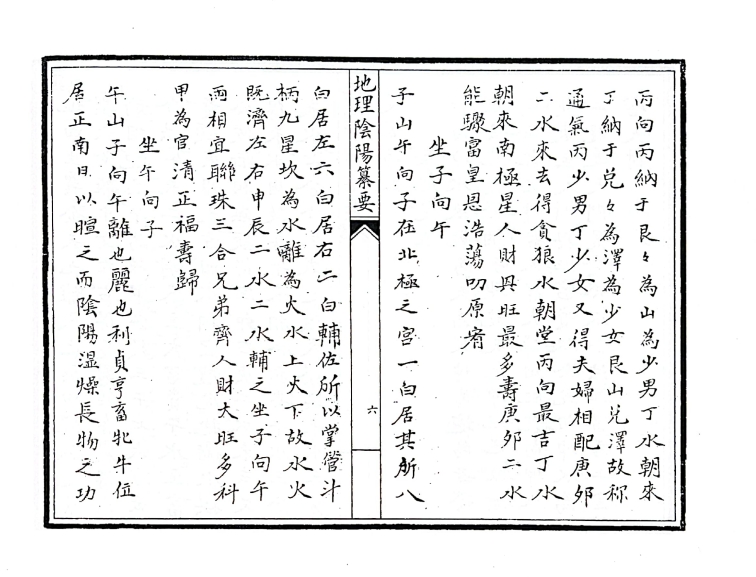 丙向丙納于艮々為山為少男丁水朝來
丁納于兌々為澤為少女艮山兌澤故称
通氣丙少男丁少女又得夫婦相配庚夘
二水來去得貪狼水朝堂丙向最吉丁水
朝來南極星人財興旺最多壽庚夘二水
能驟富皇恩浩蕩叨原宥
坐子向午
子山午向子在北極之宮一白居其所八
地理陰陽纂要
六
白居左六白居右二白輔佐所以掌管斗
柄九星坎為水離為火水上火下故水火
既濟左右申辰二水二水輔之坐子向午
兩相宜聯珠三合兄弟齊人財大旺多科
甲為官清正福壽歸
坐午向子
午山子向午離也麗也利貞亨畜牝牛位
居正南日以暄之而陰陽溫燥長物之功